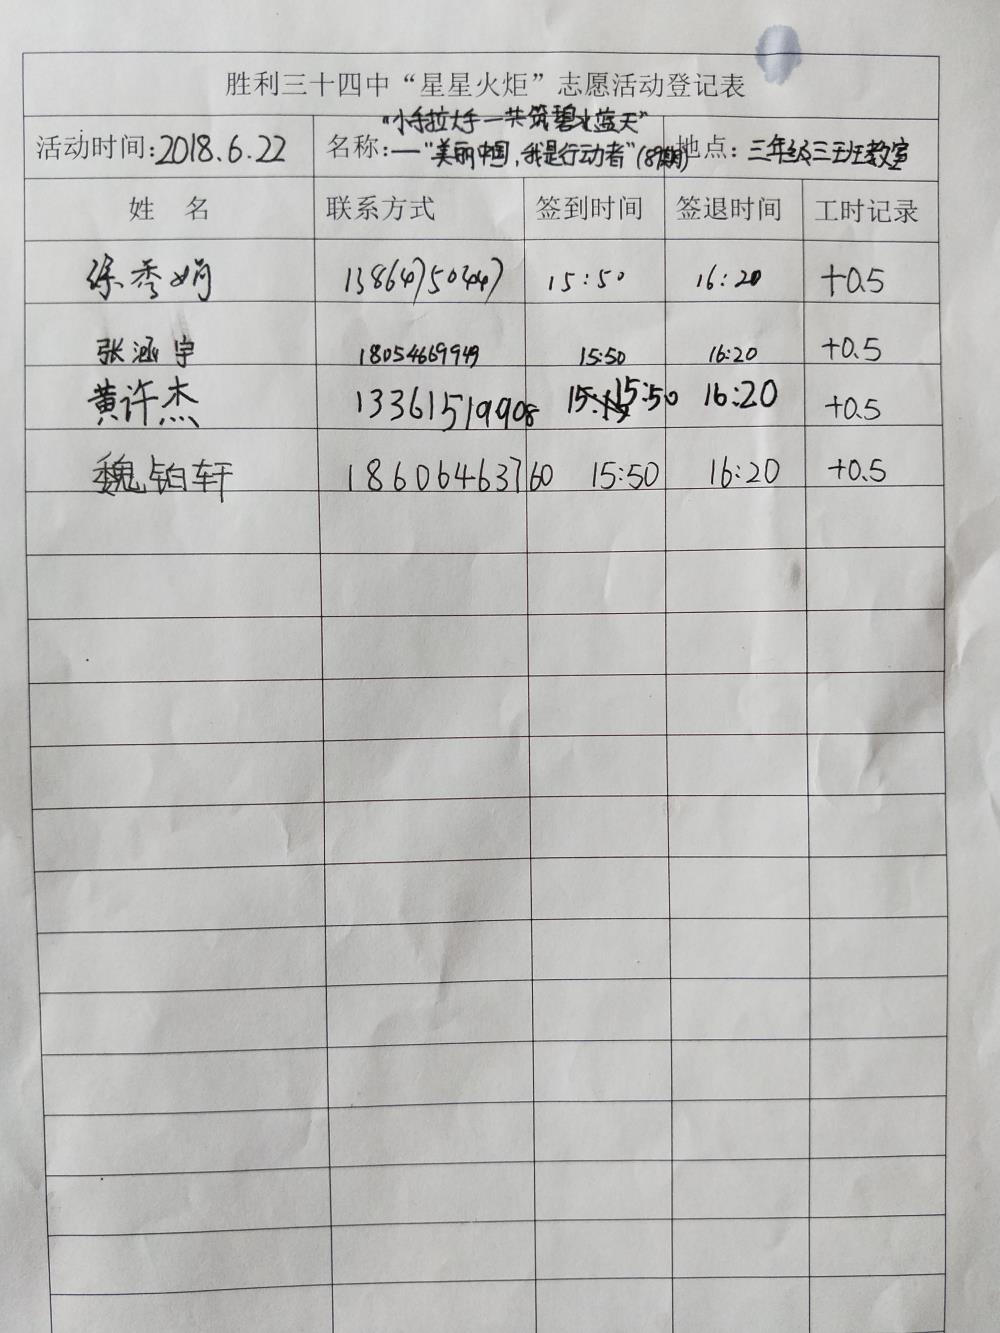 胜利三十四中“星星火炬”志愿活动登记表
活动时间:2018.6.22 名称:“小手拉大手—共筑碧水蓝天” —“美丽中国,我是行动者”(89期) 地点:三年级三班教室
姓 名 联系方式 签到时间 签退时间 工时记录
徐秀娟 13864750447 15:50 16:20 +0.5
张涵宇 18054669949 15:50 16:20 +0.5
黄许杰 13361519908 15:50 16:20 +0.5
魏铂轩 18606463760 15:50 16:20 +0.5